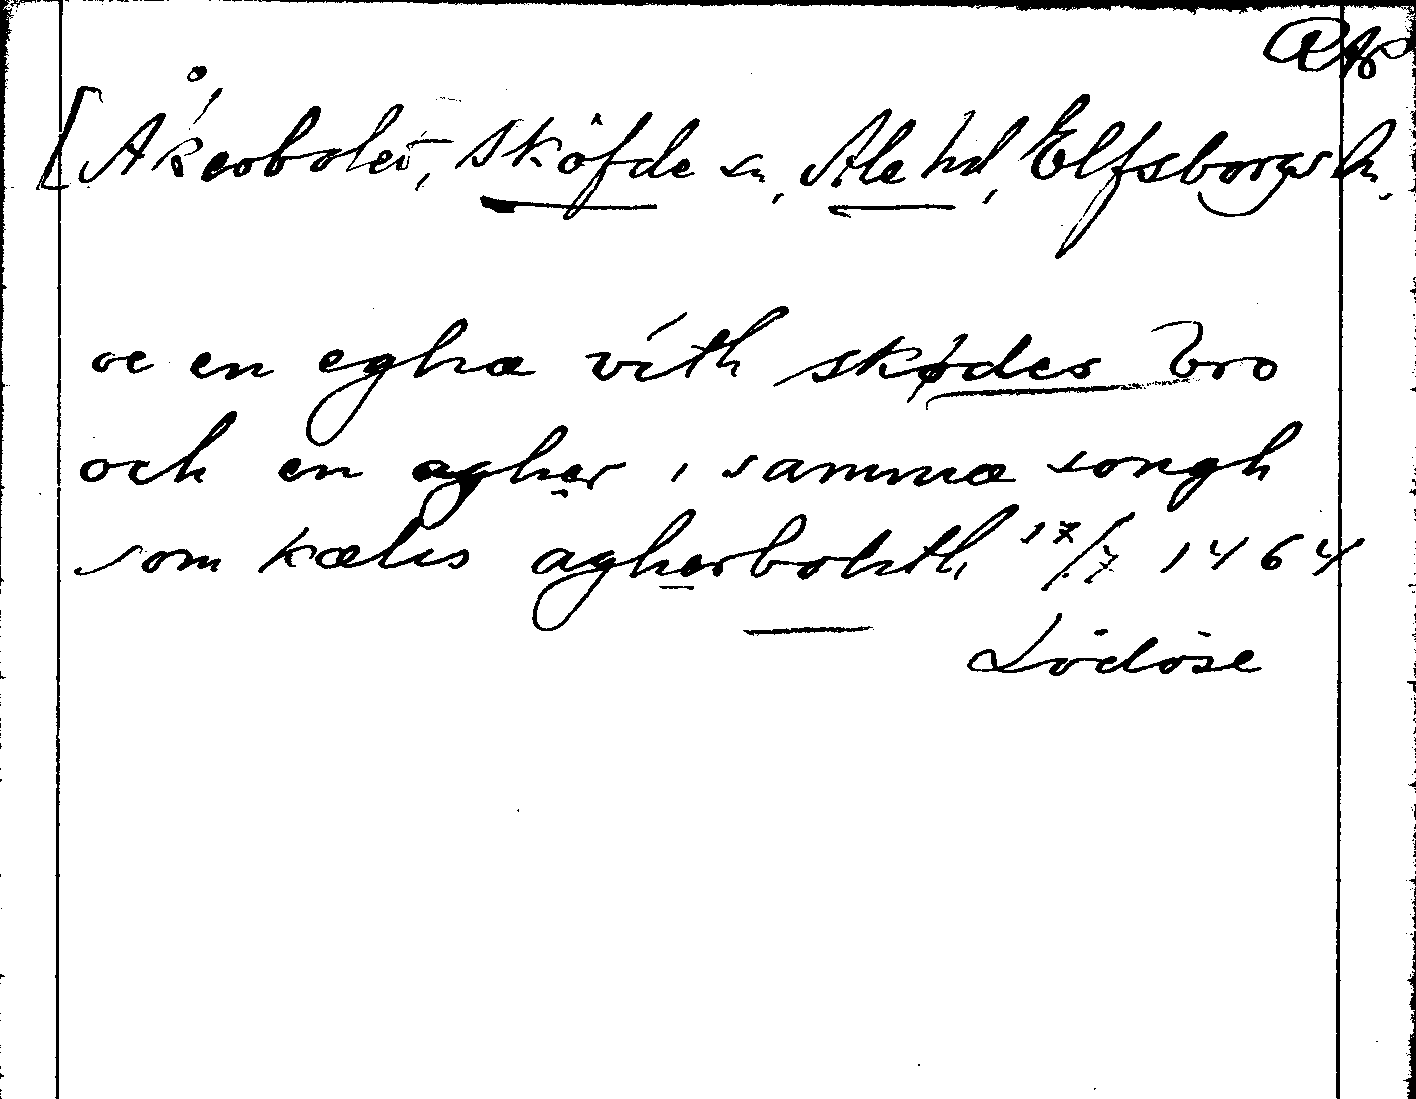 [Åkerbolet, Sköfde sn, Ale hd, Elfsborgs l.
oc en eghæ vith skødes bro
och en agher i sammæ songh
som kælis agherbolith 17/7 1464
Lödöse